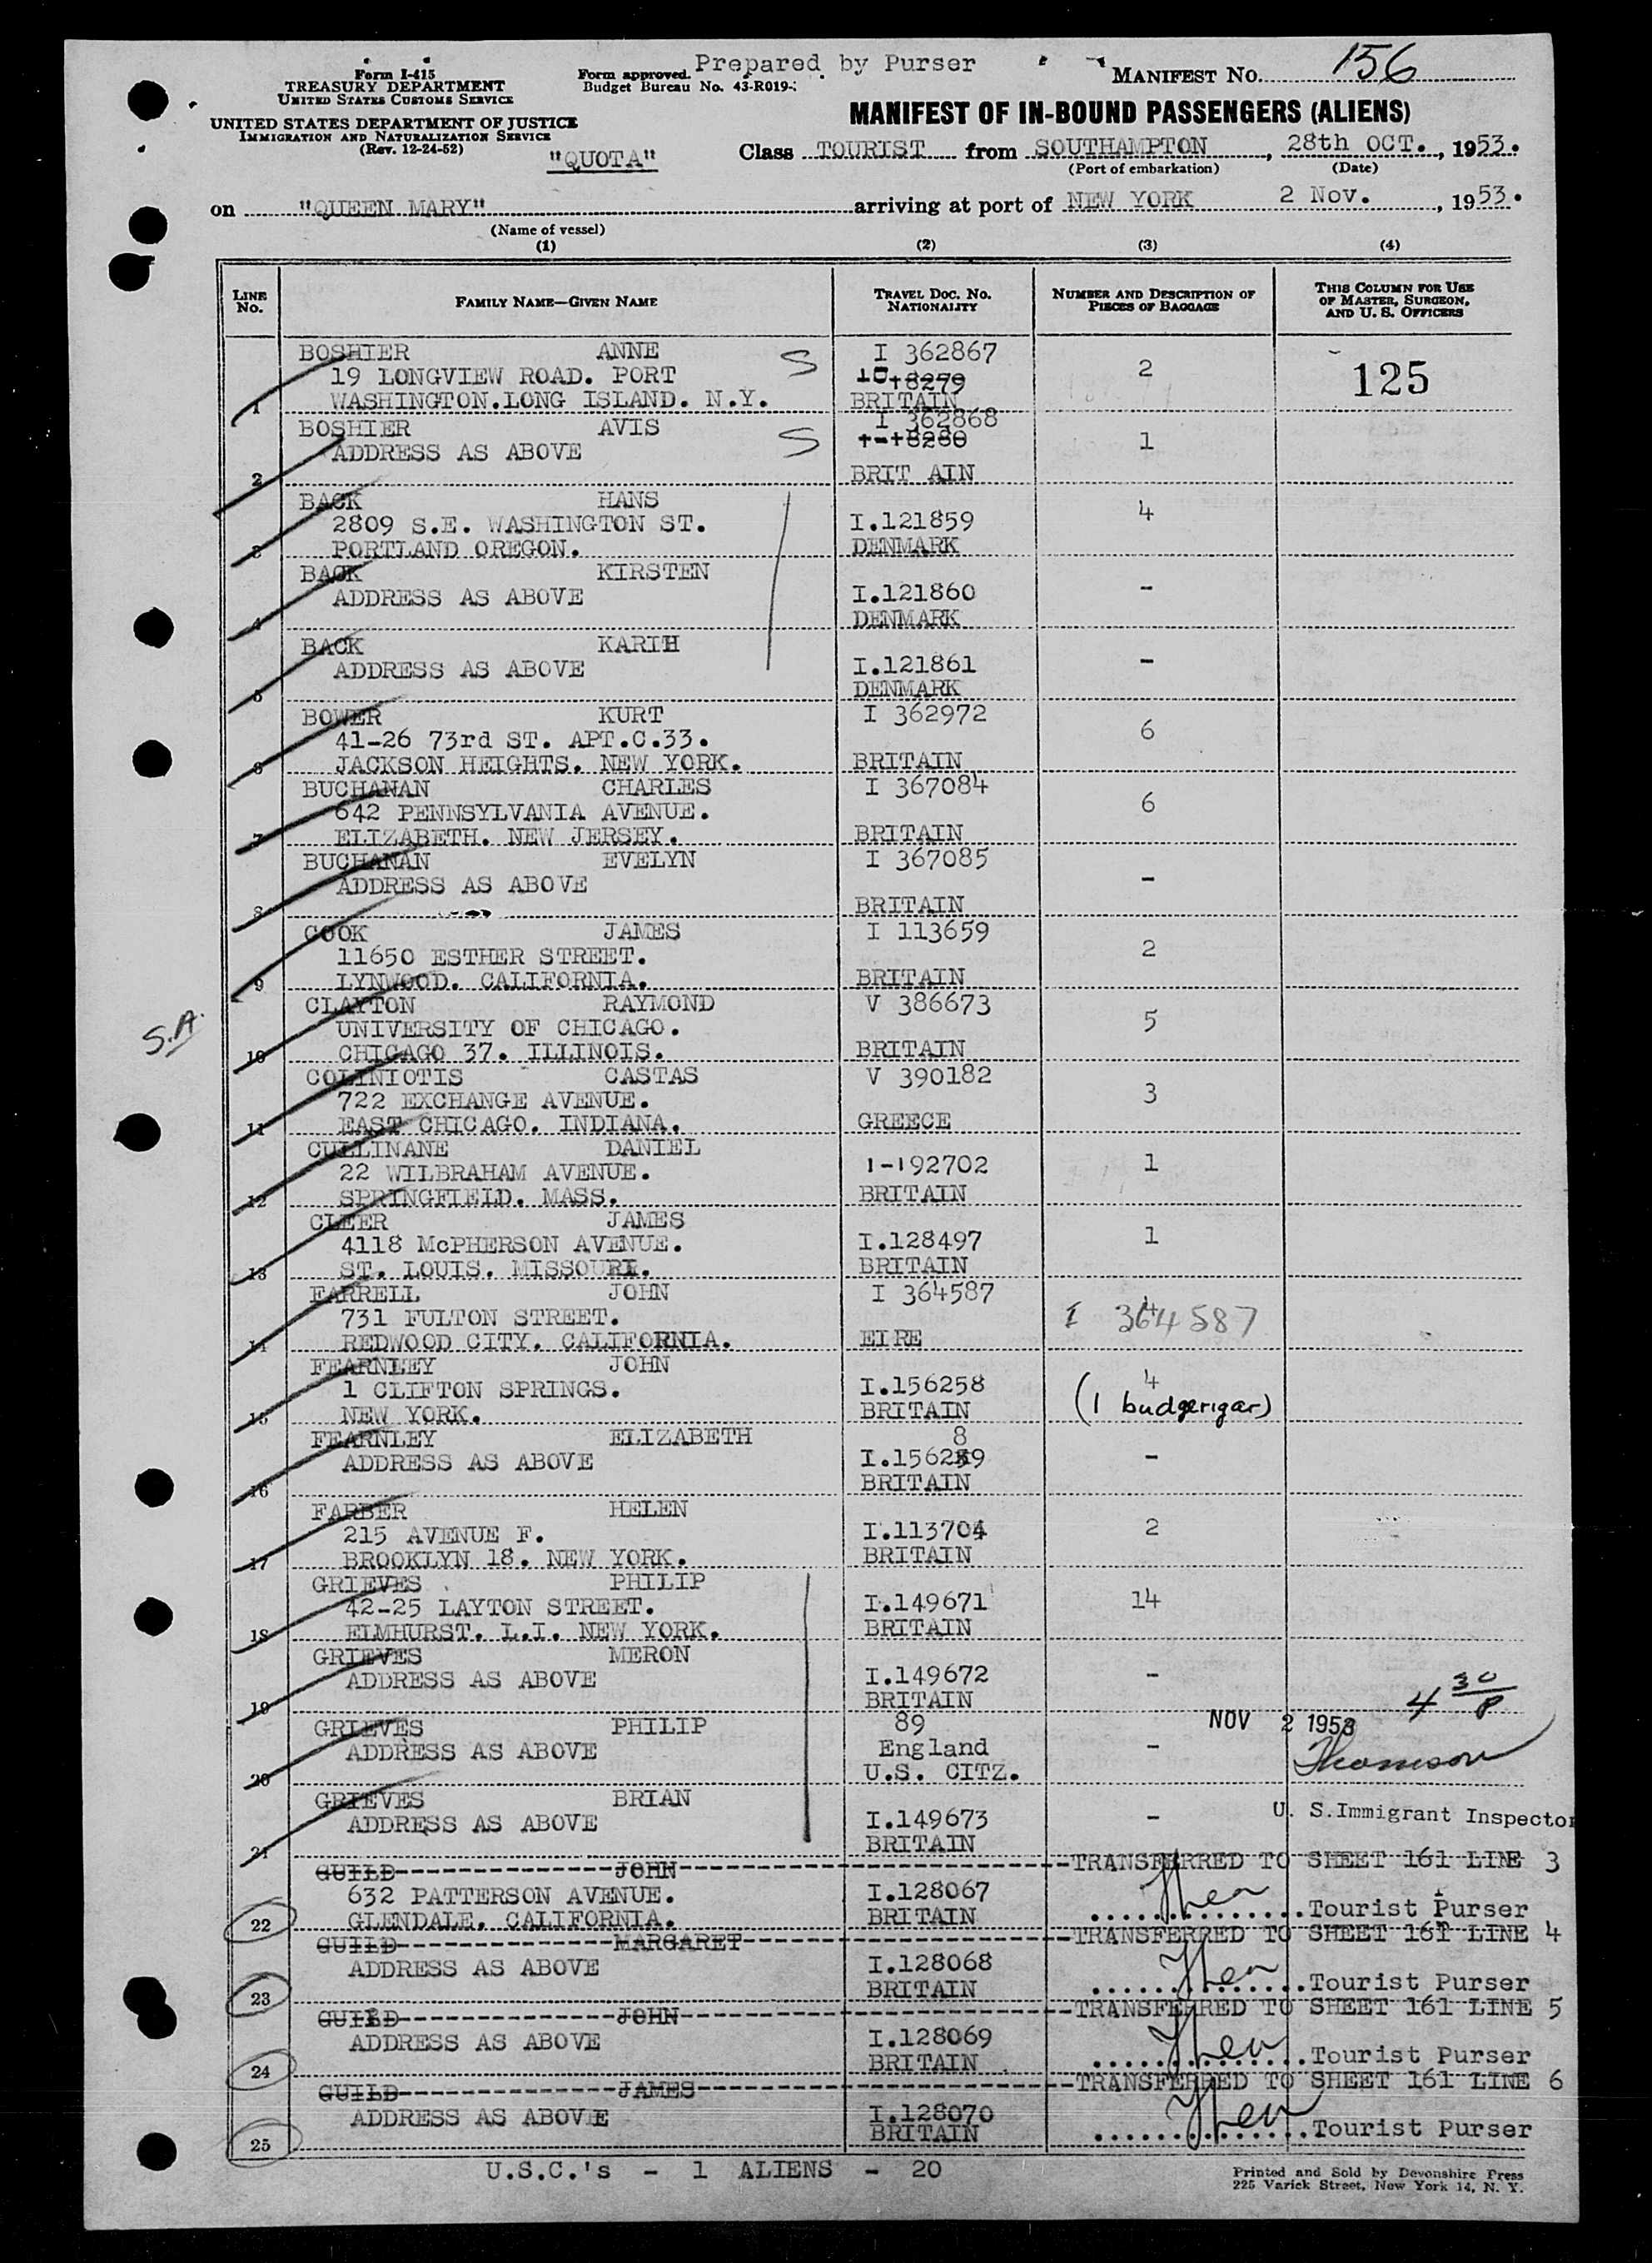 Prepared by Purser
Form I-415
TREASURY DEPARTMENT
UNITED STATES CUSTOMS SERVICE
Form approved.
Budget Bureau No. 43-R019-
MANIFEST NO. 156
UNITED STATES DEPARTMENT OF JUSTICE
IMMIGRATION AND NATURALIZATION SERVICE
(Rev. 12-24-52)
MANIFEST OF IN-BOUND PASSENGERS (ALIENS)
"QUOTA"
Class TOURIST from SOUTHAMPTON, 28th OCT., 1953.
(Port of embarkation) (Date)
on "QUEEN MARY" arriving at port of NEW YORK 2 Nov., 1953.
(Name of vessel)
(1) (2) (3) (4)
LINE No. FAMILY NAME—GIVEN NAME TRAVEL DOC. NO. NATIONALITY NUMBER AND DESCRIPTION OF PIECES OF BAGGAGE THIS COLUMN FOR USE OF MASTER, SURGEON, AND U. S. OFFICERS
BOSHIER ANNE S I 362867
19 LONGVIEW ROAD. PORT 18279 2 125
1 WASHINGTON.LONG ISLAND. N.Y. BRITAIN
BOSHIER AVIS S I 362868
ADDRESS AS ABOVE 18280 1
2 BRIT AIN
BACK HANS 4
2809 S.E. WASHINGTON ST. I.121859
3 PORTLAND OREGON. DENMARK
BACK KIRSTEN
ADDRESS AS ABOVE I.121860 -
4 DENMARK
BACK KARIH
ADDRESS AS ABOVE I.121861 -
5 DENMARK
BOWER KURT I 362972
41-26 73rd ST. APT.C.33. 6
6 JACKSON HEIGHTS. NEW YORK. BRITAIN
BUCHANAN CHARLES I 367084
642 PENNSYLVANIA AVENUE. 6
7 ELIZABETH. NEW JERSEY. BRITAIN
BUCHANAN EVELYN I 367085
ADDRESS AS ABOVE -
8 BRITAIN
COOK JAMES I 113659
11650 ESTHER STREET. 2
9 LYNWOOD. CALIFORNIA. BRITAIN
CLAYTON RAYMOND V 386673
S.A. UNIVERSITY OF CHICAGO. 5
10 CHICAGO 37. ILLINOIS. BRITAIN
COLINIOTIS CASTAS V 390182
722 EXCHANGE AVENUE. 3
11 EAST CHICAGO. INDIANA. GREECE
CULLINANE DANIEL
22 WILBRAHAM AVENUE. 1-192702 1
12 SPRINGFIELD. MASS. BRITAIN
CLEER JAMES
4118 McPHERSON AVENUE. I.128497 1
13 ST. LOUIS. MISSOURI. BRITAIN
FARRELL JOHN I 364587
731 FULTON STREET. 4 I 364587
14 REDWOOD CITY. CALIFORNIA. EIRE
FEARNLEY JOHN
1 CLIFTON SPRINGS. I.156258 4
15 NEW YORK. BRITAIN (1 budgerigar)
FEARNLEY ELIZABETH 8
ADDRESS AS ABOVE I.156259 -
16 BRITAIN
FARBER HELEN
215 AVENUE F. I.113704 2
17 BROOKLYN 18. NEW YORK. BRITAIN
GRIEVES PHILIP
42-25 LAYTON STREET. I.149671 14
18 ELMHURST. L.I. NEW YORK. BRITAIN
GRIEVES MERON
ADDRESS AS ABOVE I.149672 -
19 BRITAIN 4 30 P
GRIEVES PHILIP 89 NOV 2 1953
ADDRESS AS ABOVE England - Thomson
20 U.S. CITZ.
GRIEVES BRIAN U. S.Immigrant Inspector
ADDRESS AS ABOVE I.149673 -
21 BRITAIN
GUILD JOHN TRANSFERRED TO SHEET 161 LINE 3
632 PATTERSON AVENUE. I.128067 Tourist Purser
22 GLENDALE. CALIFORNIA. BRITAIN
GUILD MARGARET TRANSFERRED TO SHEET 161 LINE 4
ADDRESS AS ABOVE I.128068 Tourist Purser
23 BRITAIN
GUILD JOHN TRANSFERRED TO SHEET 161 LINE 5
ADDRESS AS ABOVE I.128069 Tourist Purser
24 BRITAIN
GUILD JAMES TRANSFERRED TO SHEET 161 LINE 6
ADDRESS AS ABOVE I.128070 Tourist Purser
25 BRITAIN
U.S.C.'s - 1 ALIENS - 20
Printed and Sold by Devonshire Press
225 Varick Street, New York 14, N. Y.